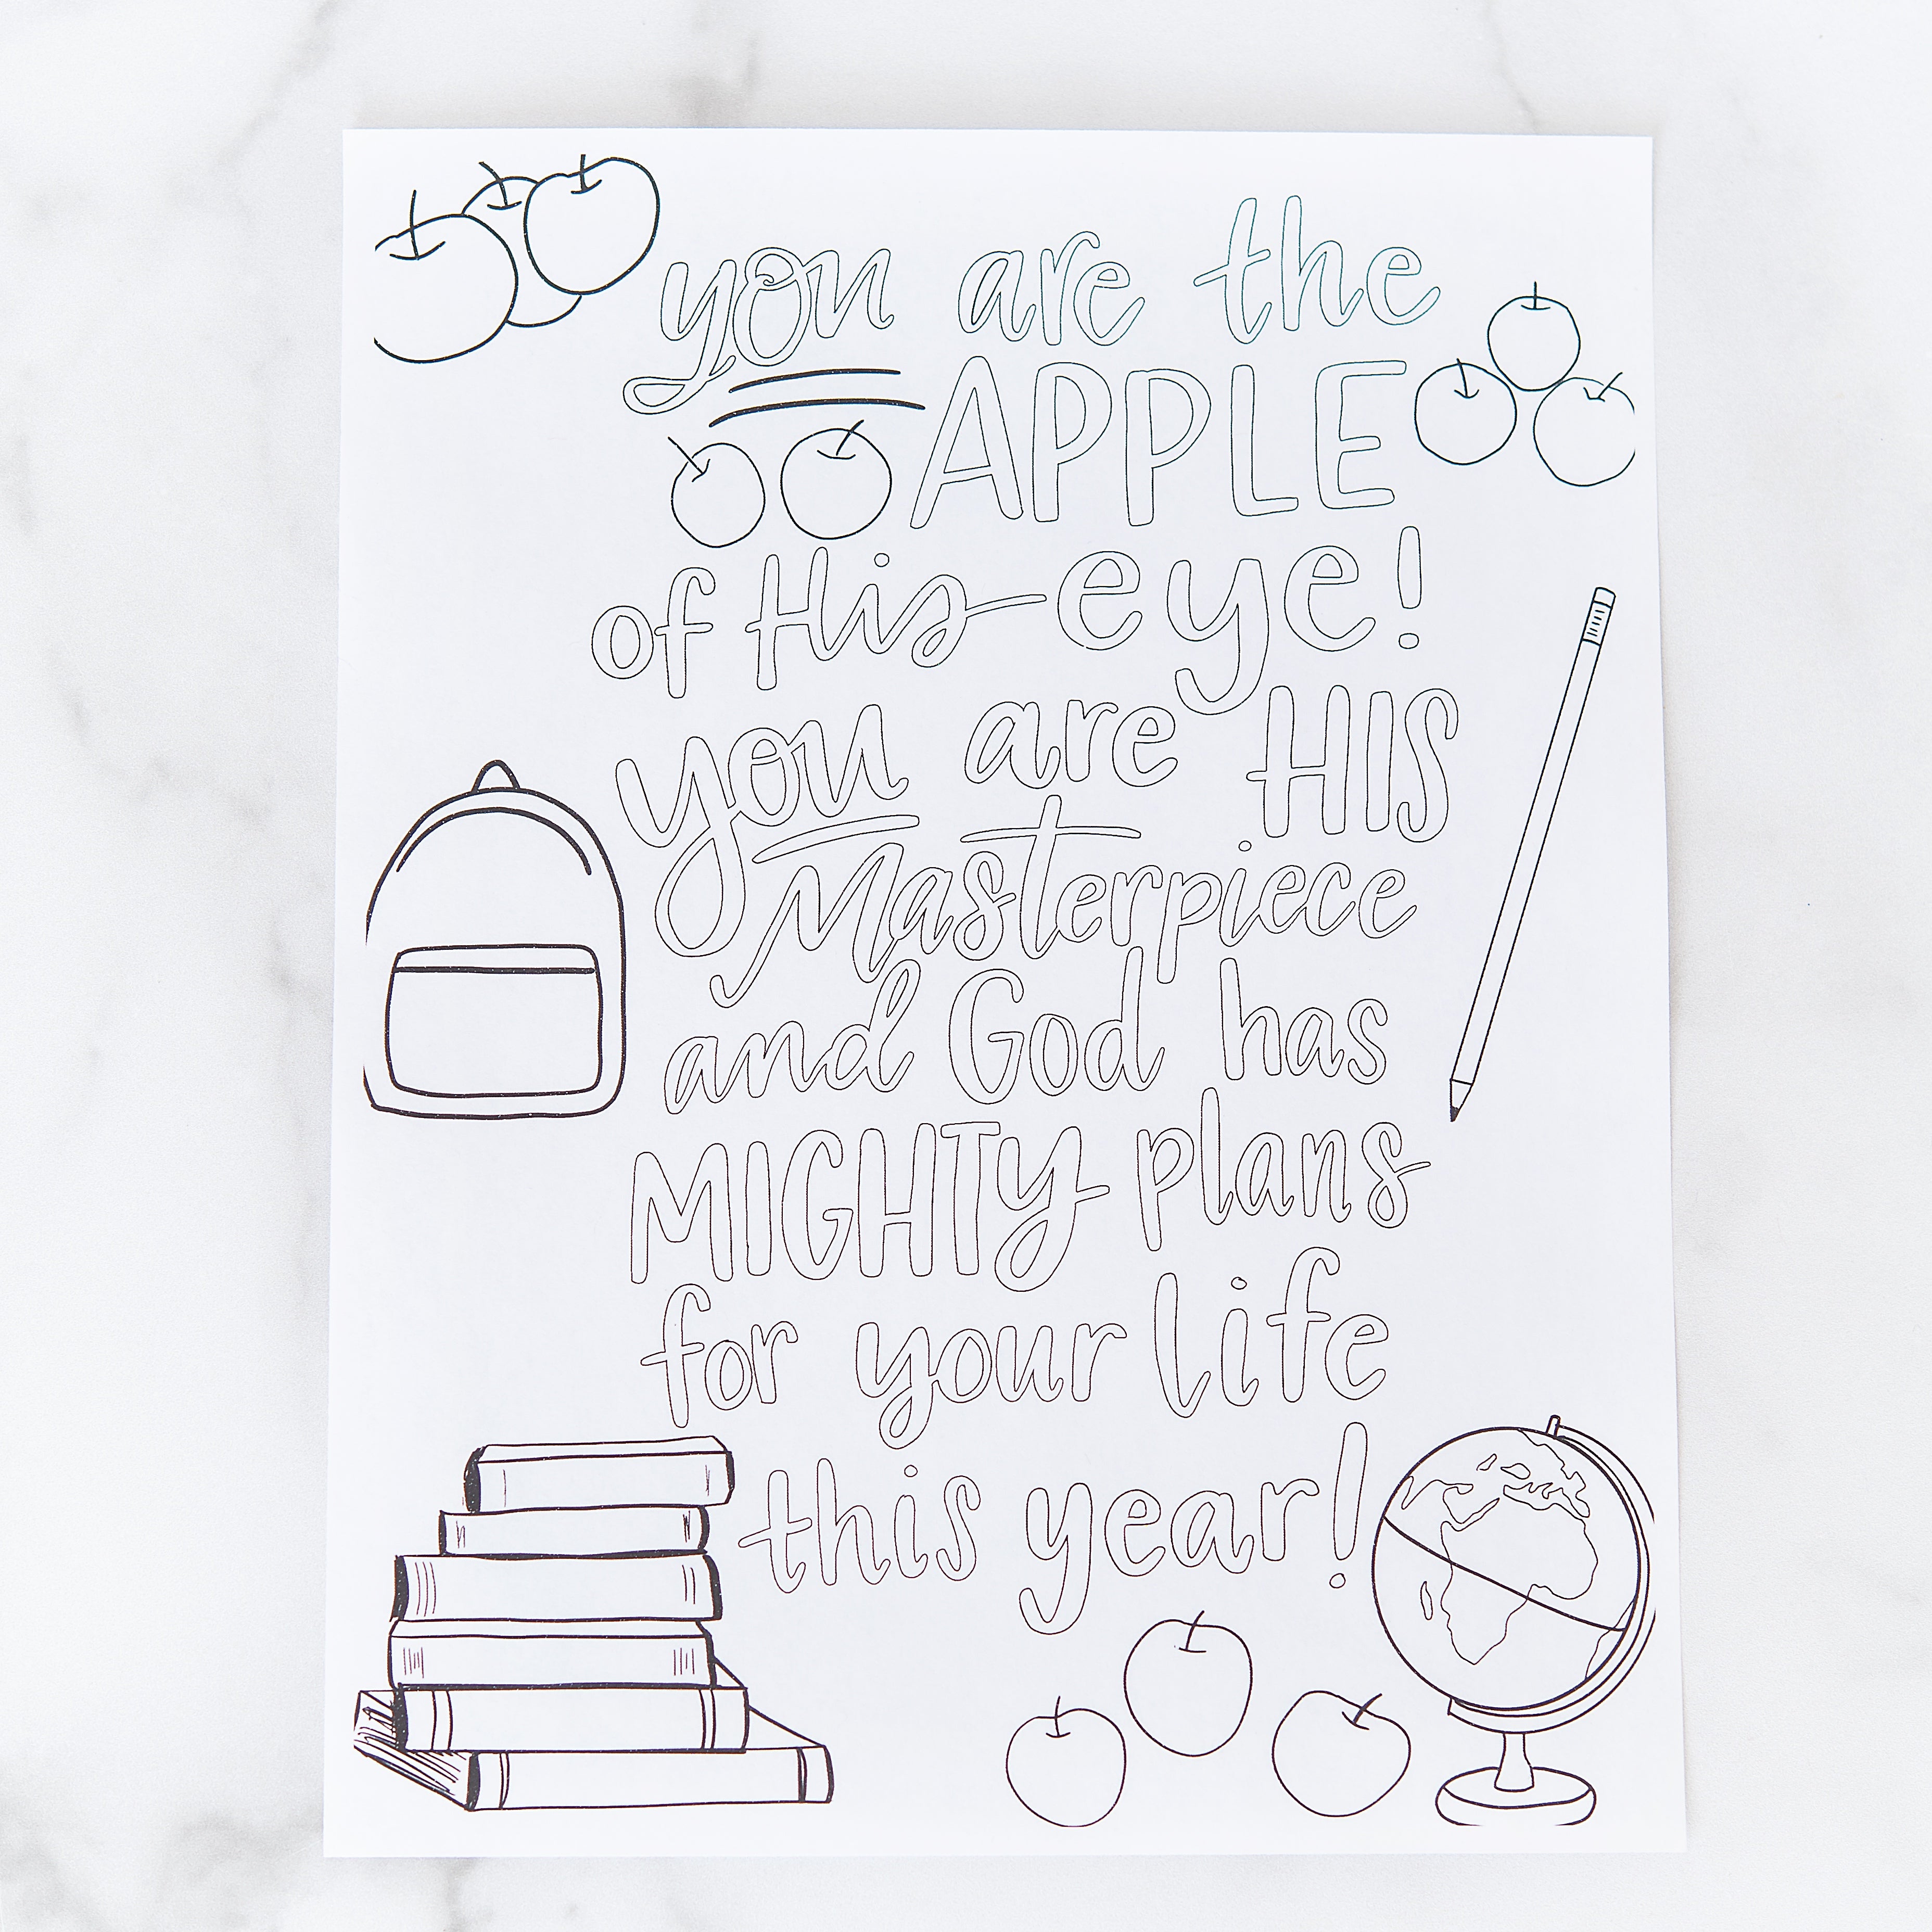 you are the
APPLE
of His eye!
you are HIS
Masterpiece
and God has
MIGHTY plans
for your life
this year!